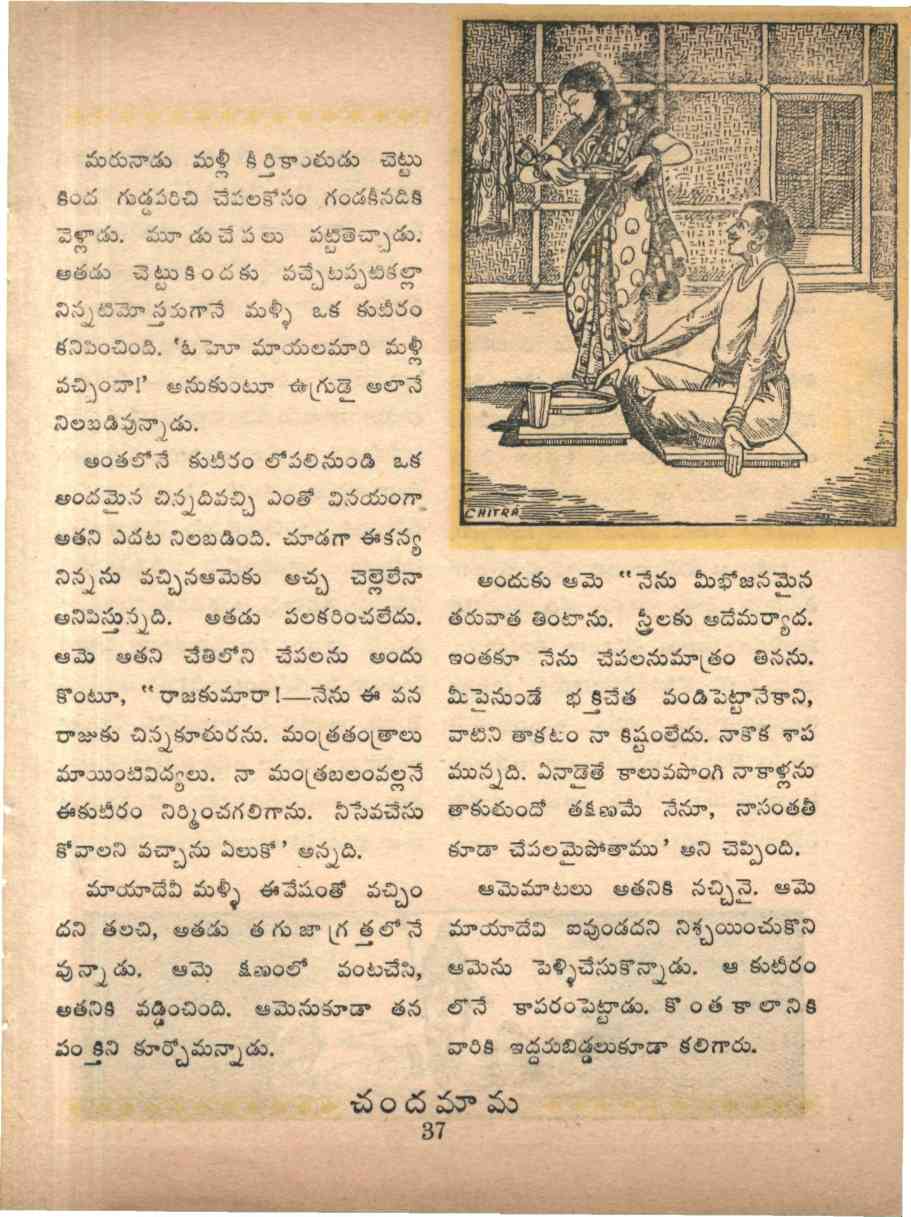 మరునాడు మళ్లీ కీర్తికాంతుడు చెట్టు
కింద గుడ్డపరిచి చేపలకోసం గండకీనదికి
వెళ్లాడు. మూడుచేపలు పట్టితెచ్చాడు.
అతడు చెట్టుకిందకు వచ్చేటప్పటికల్లా
నిన్నటిమోస్తరుగానే మళ్ళీ ఒక కుటీరం
కనిపించింది. ‘ఓహో మాయలమారి మళ్లీ
వచ్చిందా!’ అనుకుంటూ ఉగ్రుడై అలానే
నిలబడివున్నాడు.
అంతలోనే కుటీరం లోపలినుండి ఒక
అందమైన చిన్నదివచ్చి ఎంతో వినయంగా
అతని ఎదట నిలబడింది. చూడగా ఈకన్య
నిన్నను వచ్చినఆమెకు అచ్చ చెల్లెలేనా
అనిపిస్తున్నది. అతడు పలకరించలేదు.
ఆమె అతని చేతిలోని చేపలను అందు
కొంటూ, “రాజకుమారా!—నేను ఈ వన
రాజుకు చిన్నకూతురను. మంత్రతంత్రాలు
మాయింటివిద్యలు. నా మంత్రబలంవల్లనే
ఈకుటీరం నిర్మించగలిగాను. నీసేవచేసు
కోవాలని వచ్చాను ఏలుకో’ అన్నది.
మాయాదేవీ మళ్ళీ ఈవేషంతో వచ్చిం
దని తలచి, అతడు తగుజాగ్రత్తలోనే
వున్నాడు. ఆమె క్షణంలో వంటచేసి,
అతనికి వడ్డించింది. ఆమెనుకూడా తన
పంక్తిని కూర్చోమన్నాడు.
CHITRA
అందుకు ఆమె “నేను మీభోజనమైన
తరువాత తింటాను. స్త్రీలకు అదేమర్యాద.
ఇంతకూ నేను చేపలనుమాత్రం తినను.
మీపైనుండే భక్తిచేత వండిపెట్టానేకాని,
వాటిని తాకటం నా కిష్టంలేదు. నాకొక శాప
మున్నది. ఏనాడైతే కాలువపొంగి నాకాళ్లను
తాకుతుందో తక్షణమే నేనూ, నాసంతతీ
కూడా చేపలమైపోతాము’ అని చెప్పింది.
ఆమెమాటలు అతనికి నచ్చినై. ఆమె
మాయాదేవి ఐవుండదని నిశ్చయించుకొని
ఆమెను పెళ్ళిచేసుకొన్నాడు. ఆ కుటీరం
లోనే కాపరంపెట్టాడు. కొంతకాలానికి
వారికి ఇద్దరుబిడ్డలుకూడా కలిగారు.
చందమామ
37